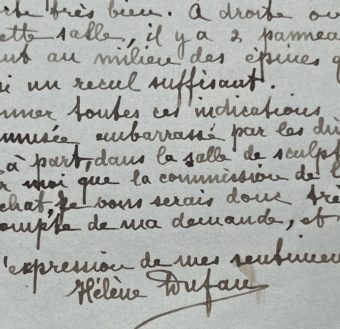 rte très bien. A droite ou
ette salle, il y a 2 pannea
ut au milieu des épines q
i un recul suffisant.
nner toutes ces indications
musée embarrassé par les di
à part, dans la salle de sculpt
r moi que la commission de l
chat, je vous serais donc trè
ompte de ma demande, et
l'expression de mes sentimen
Hélène Dufau